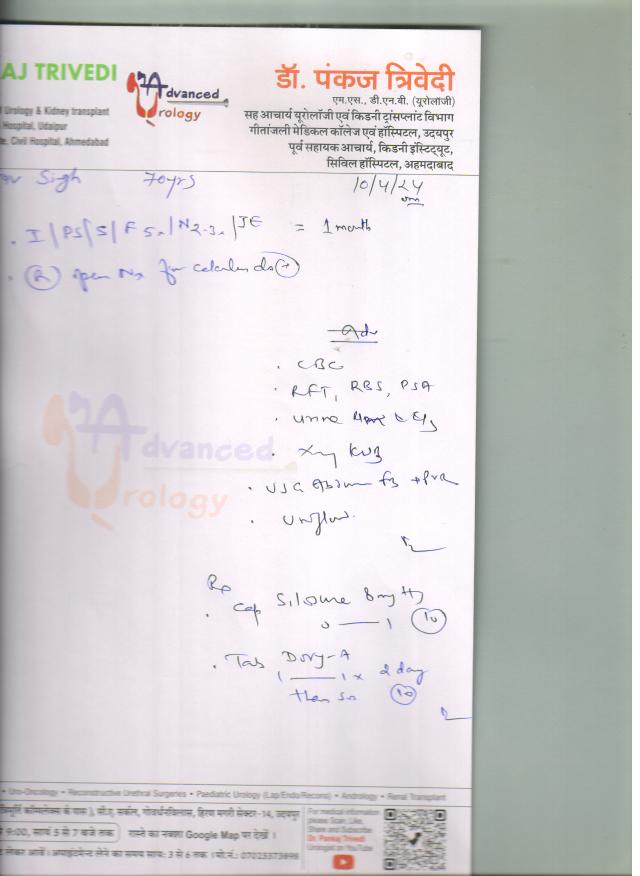 AJ TRIVEDI
Urology & Kidney transplant
Hospital, Udaipur
Civil Hospital, Ahmedabad
Advanced
Urology
डॉ. पंकज त्रिवेदी
एम.एस., डी.एन.बी. (यूरोलॉजी)
सह आचार्य यूरोलॉजी एवं किडनी ट्रांसप्लांट विभाग
गीतांजली मेडिकल कॉलेज एवं हॉस्पिटल, उदयपुर
पूर्व सहायक आचार्य, किडनी इंस्टिट्यूट,
सिविल हॉस्पिटल, अहमदाबाद
Singh 70yrs 10/4/24
I/PS/S/F5x/N2-3x/IE = 1 month
(R) open Nx for calculus ds (+)
Adv
CBC
RFT, RBS, PSA
urine
Xray KUB
USG Abdomen + PVR
Uroflow.
Advanced
Urology
Rx
Cap 8mg
0 — 1 (10)
Tab Doxy-A
1 — 1 x 2 day
then (10)
Uro-Oncology - Reconstructive Urethral Surgeries - Paediatric Urology (Lap/Endo/Recons) - Andrology - Renal Transplant
कॉम्पलेक्स के पास), गोवर्धनविलास, हिरण मगरी सेक्टर-14, उदयपुर
9:00, सायं 5 से 7 बजे तक रास्ते का नक्शा Google Map पर देखें।
लेकर आवें। अपाइंटमेन्ट लेने का समय सायं: 3 से 6 तक। मो.नं.: 07023373898
For medical information
please Scan, Like,
Share and Subscribe
Dr. Pankaj Trivedi
Urologist on YouTube